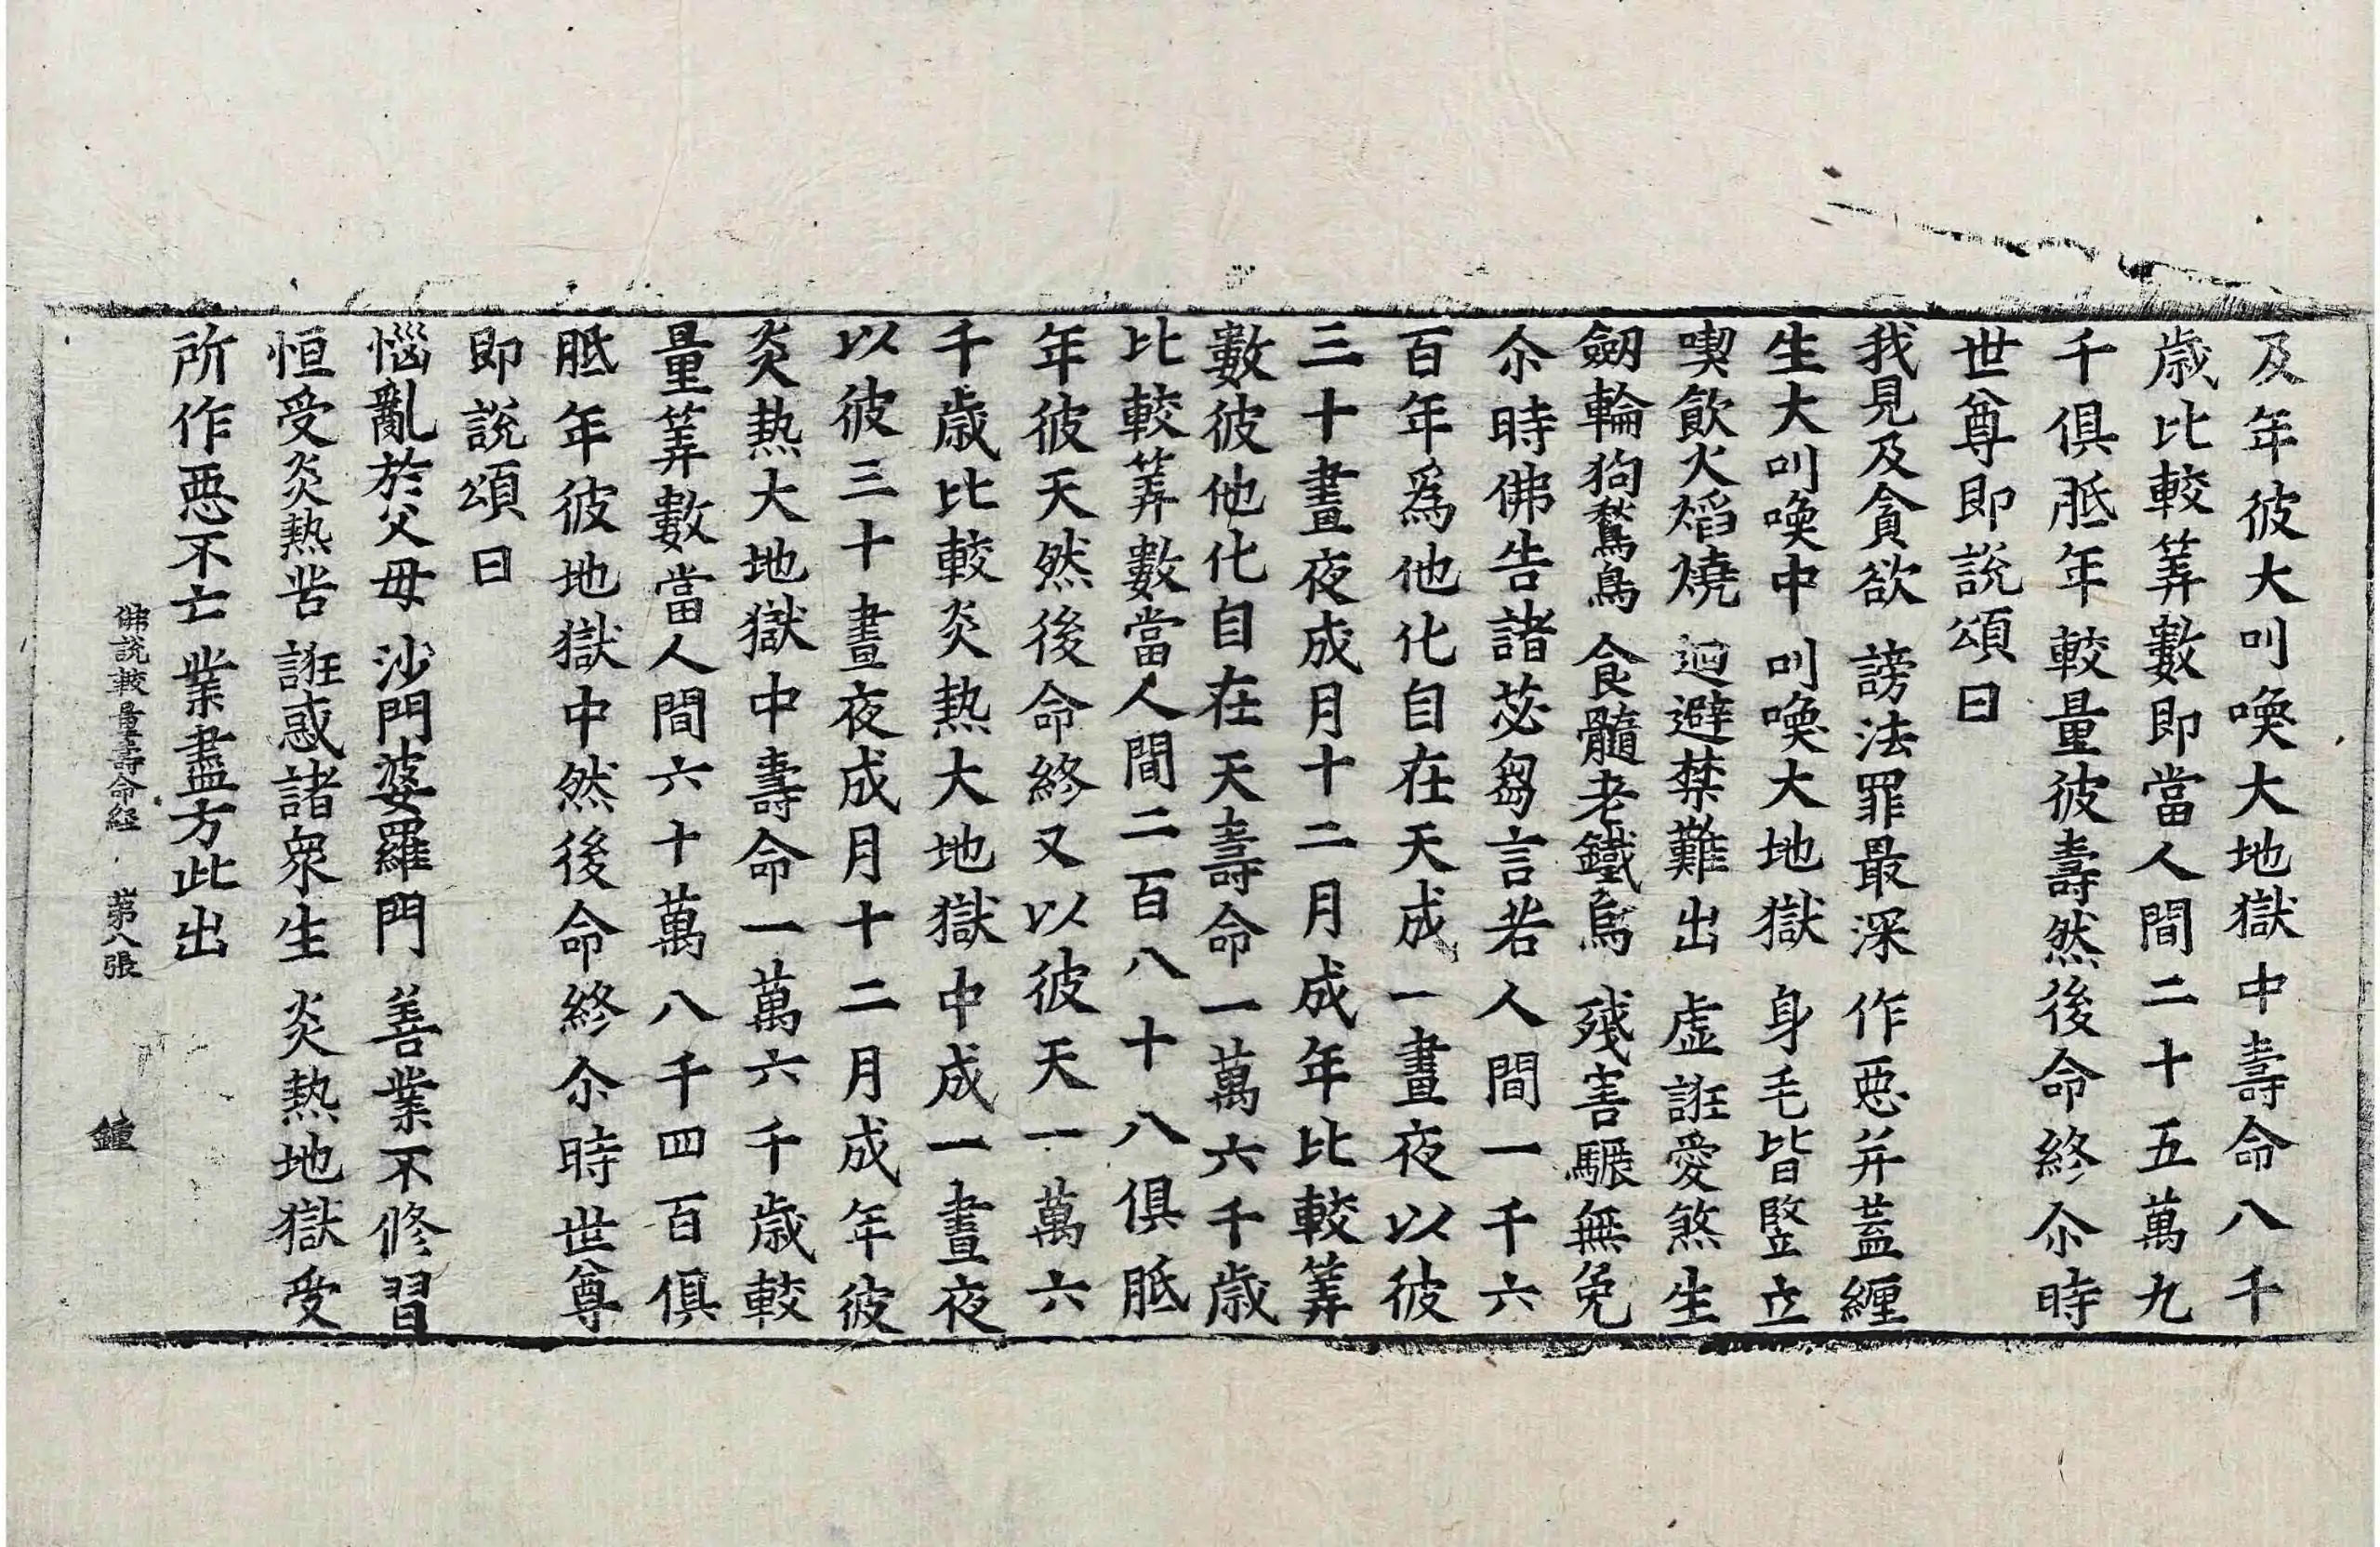 及年彼大叫喚大地獄中壽命八千
歳比較筭數即當人間二十五萬九
千俱胝年較量彼壽然後命終尒時
世尊即說頌曰
我見及貪欲 謗法罪最深 作惡并蓋纏
生大叫喚中 叫喚大地獄 身毛皆竪立
喫飲火熖燒 迴避禁難出 虛誑愛煞生
劒輪狗鷲鳥 食髓老鐵烏 殘害驅無免
尒時佛告諸苾芻言若人間一千六
百年爲他化自在天成一晝夜以彼
三十晝夜成月十二月成年比較筭
數彼他化自在天壽命一萬六千歳
比較筭數當人間二百八十八俱胝
年彼天然後命終又以彼天一萬六
千歳比較炎熱大地獄中成一晝夜
以彼三十晝夜成月十二月成年彼
炎熱大地獄中壽命一萬六千歳較
量筭數當人間六十萬八千四百俱
胝年彼地獄中然後命終尒時世尊
即說頌曰
惱亂於父母 沙門婆羅門 善業不修習
恒受炎熱苦 誑惑諸衆生 炎熱地獄受
所作惡不亡 業盡方此出
佛說較量壽命經 第八張 鍾